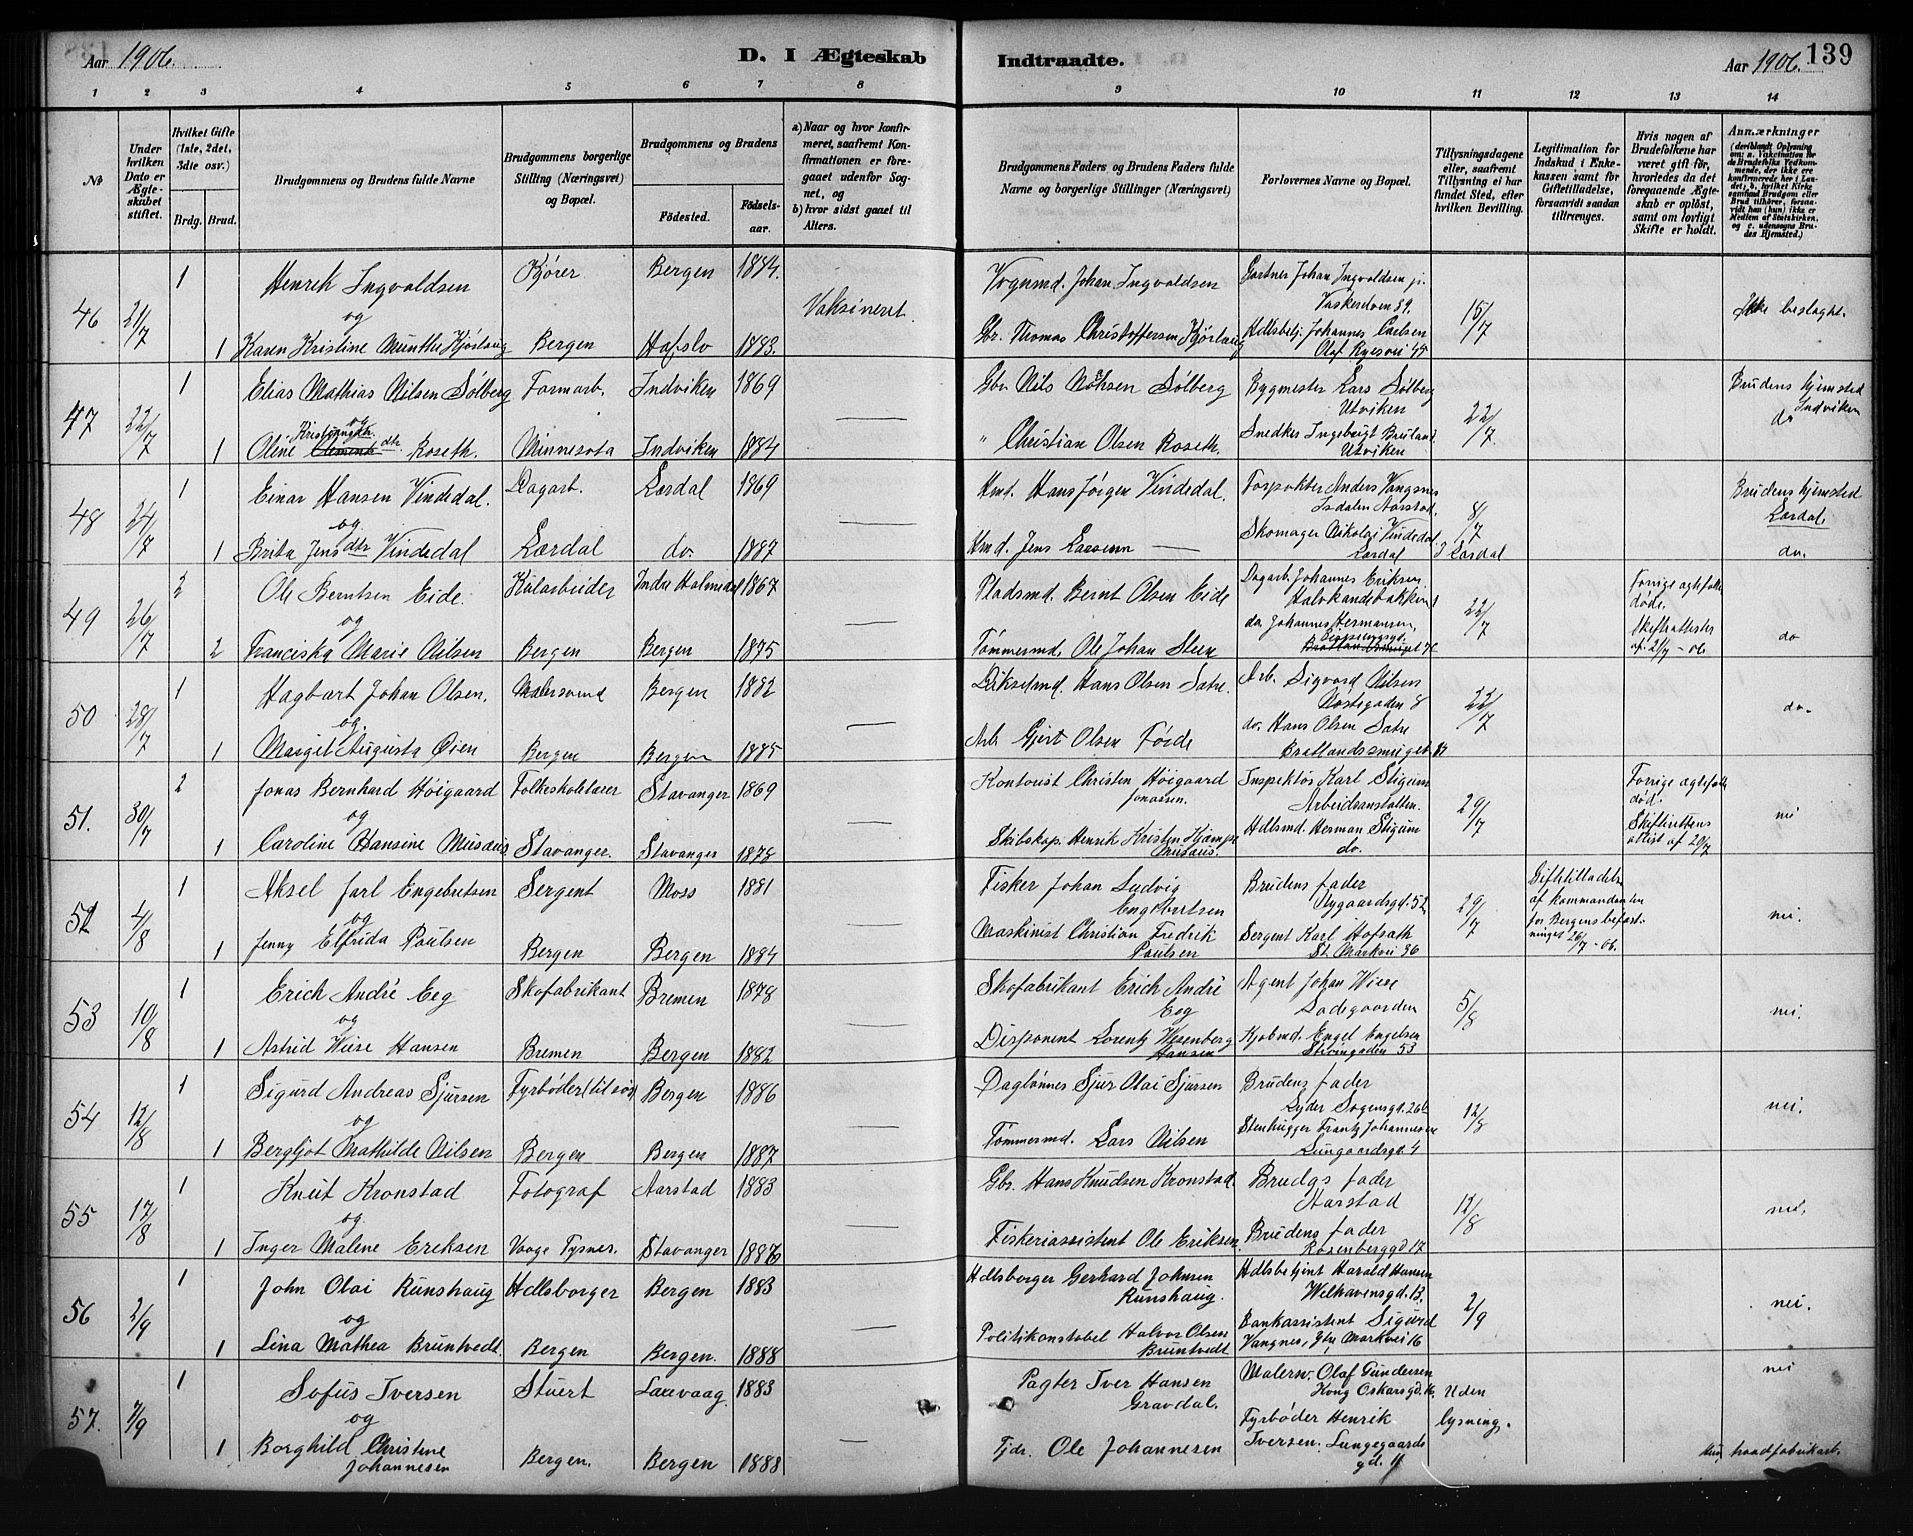 Aar 1906.
D. I Ægteskab
Indtraadte.
Aar 1906.
139
1 2 3 4 5 6 7 8 9 10 11 12 13 14
No
Under hvilken Dato er Ægteskabet stiftet.
Hvilket Gifte (1ste, 2det, 3die osv.)
Brdg. Brud.
Brudgommens og Brudens fulde Navne
Brudgommens borgerlige Stilling (Næringsvei) og Bopæl.
Brudgommens og Brudens
Fødested.
Fødselsaar.
a) Naar og hvor konfirmeret, saafremt Konfirmationen er foregaaet udenfor Sognet, og
b) hvor sidst gaaet til Alters.
Brudgommens Faders og Brudens Faders fulde Navne og borgerlige Stillinger (Næringsvei)
Forlovernes Navne og Bopæl.
Tillysningsdagene eller, saafremt Tillysning ei har fundet Sted, efter hvilken Bevilling.
Legitimation for Indskud i Enkekassen samt for Giftetilladelse, forsaavidt saadan tiltrænges.
Hvis nogen af Brudefolkene har været gift før, hvorledes da det foregaaende Ægteskab er opløst, samt om lovligt Skifte er holdt.
Anmærkninger
46 21/7
1 Henrik Ingvaldsen Kjører Bergen 1884. Vognmd. Johan Ingvaldsen Gartner Johan Ingvoldsen jr.
og Vaksineret. 15/7 Ikke beslægt.
1 Karen Kristine Munthe Kjørlaug Bergen Hafslo 1883. Gbr. Thomas Christoffersen Kjørlaug Hdlsbetj. Johannes Carlsen
Olaf Ryesvei 45
47 22/7
1 Elias Mathias Nilsen Sølberg Farmarb. Indviken 1869 Gbr. Nils Sølberg Bygmester Lars Sølberg Brudens hjemsted
og Utviken 22/7 Indviken
1 Oline Roseth. Minnesota Indviken 1884 " Christian Olsen Roseth. Snedker Ingebrigt Bruland do
Utviken
48 24/7
1 Einar Hansen Vindedal. Dagarb. Lærdal 1869 Hmd. Hans Jørgen Vindedal. Anders Vangsnes Brudens hjemsted
og 8/7 Lærdal.
1 Brita Jensdtr Vindedal Lærdal do. 1887 Hmd. Jens Lassenn — Skomager Nikolai Vindedal. do.
Lærdal I Lærdal
49 26/7
2 Ole Berntsen Eide. Kularbeider Indre Holmedal 1867 Pladsmd. Bernt Olsen Eide Dagarb. Johannes Eriksen Forrige ægtefolk døde.
og do. Johannes Hermansen, 22/7 Skifteattester do
2 Franciska Marie Nilsen Bergen Bergen 1875 Tømmermd. Ole Johan Steen af 21/7 - 06.
50 28/7
1 Hagbart Johan Olsen. Malersvend Bergen 1882 Hans Olsen Sætre. Arb. Sigvard Nilsen
og Nøstegaden 8 22/7 do.
1 Margit Augusta Øien Bergen Bergen 1885 Arb. Gjert Olsen Førde do. Hans Olsen Sætre
51. 30/7
2 Jonas Bernhard Høigaard Folkeskolelærer Stavanger 1869 Kontorist Christen Høigaard Jonassen. Inspektør Karl Stigum Forrige ægtefolk død.
og Arbeidsanstalten. 29/7 Skifterettens nei
1 Caroline Hansine Musæus Stavanger. Stavanger 1878 Skibskap. Henrik Kristen Musæus. Hdlsmd. Herman Stigum attest af 20/7
do.
52 4/8
1 Aksel Jarl Engebretsen Sergent Moss 1881 Fisker Johan Ludvig Engebretsen Brudens fader Giftetilladelse
og Nygaardsgd. 52 29/7 af kommandanten nei.
1 Jenny Elfrida Paulsen Bergen Bergen 1884 Maskinist Christian Fredrik Paulsen Sergent Karl Hofsæth for Bergens befæstninger
St. Markvei 36 26/7 - 06.
53 10/8
1 Erich André Eeg Skofabrikant Bremen 1878 Skofabrikant Erich André Eeg Agent Johan Wiese
og Ladegaarden 5/8 nei.
1 Astrid Wiese Hansen Bremen Bergen 1882 Disponent Lorentz Wesenberg Hansen Kjøbmd. Engel Engelsen
54 12/8
1 Sigurd Andreas Sjursen Fyrbøder (tilsøs) Bergen 1886 Daglønner Sjur Olai Sjursen Brudens fader
og Lyder Sagensgd. 26 12/8 nei.
1 Bergljot Mathilde Nilsen Bergen Bergen 1887 Tømmermd. Lars Nilsen Stenhugger Frantz Johannesen
Lungaardsgd. 4
55 17/8
1 Knut Kronstad Fotograf Aarstad 1883 Gbr. Hans Knudsen Kronstad. Brudgs fader
og Aarstad 12/8 nei.
1 Inger Malene Eriksen Vaage Tysnes. Stavanger Fiskeriassistent Ole Eriksen. Brudens fader
Rosenberggd 17
56 2/9
1 John Olai Runshaug Hdlsborger Bergen 1883 Hdlsborger Gerhard Johnsen Runshaug. Hdlsbetjent Harald Hansen
og Welhavensgd. 13. 2/9 nei.
1 Lina Mathea Bruntvedt. Bergen Bergen. 1888 Politikonstabel Halvor Olsen Bruntvedt Bankassistent Sigurd
Vangnes, Markvei 16
57. 7/9
1 Sofus Iversen Stuert Laavaag. 1883 Pagter Iver Hansen Gravdal. Malerm. Olaf Gundersen nei
og Kong Oskarsgd. Uden
Fyrbøder Henrik lysning.
1 Borghild Christine Johannesen Bergen. Bergen 1888 Tjdr. Ole Johannesen Iversen. Lungegaardsgd. 11